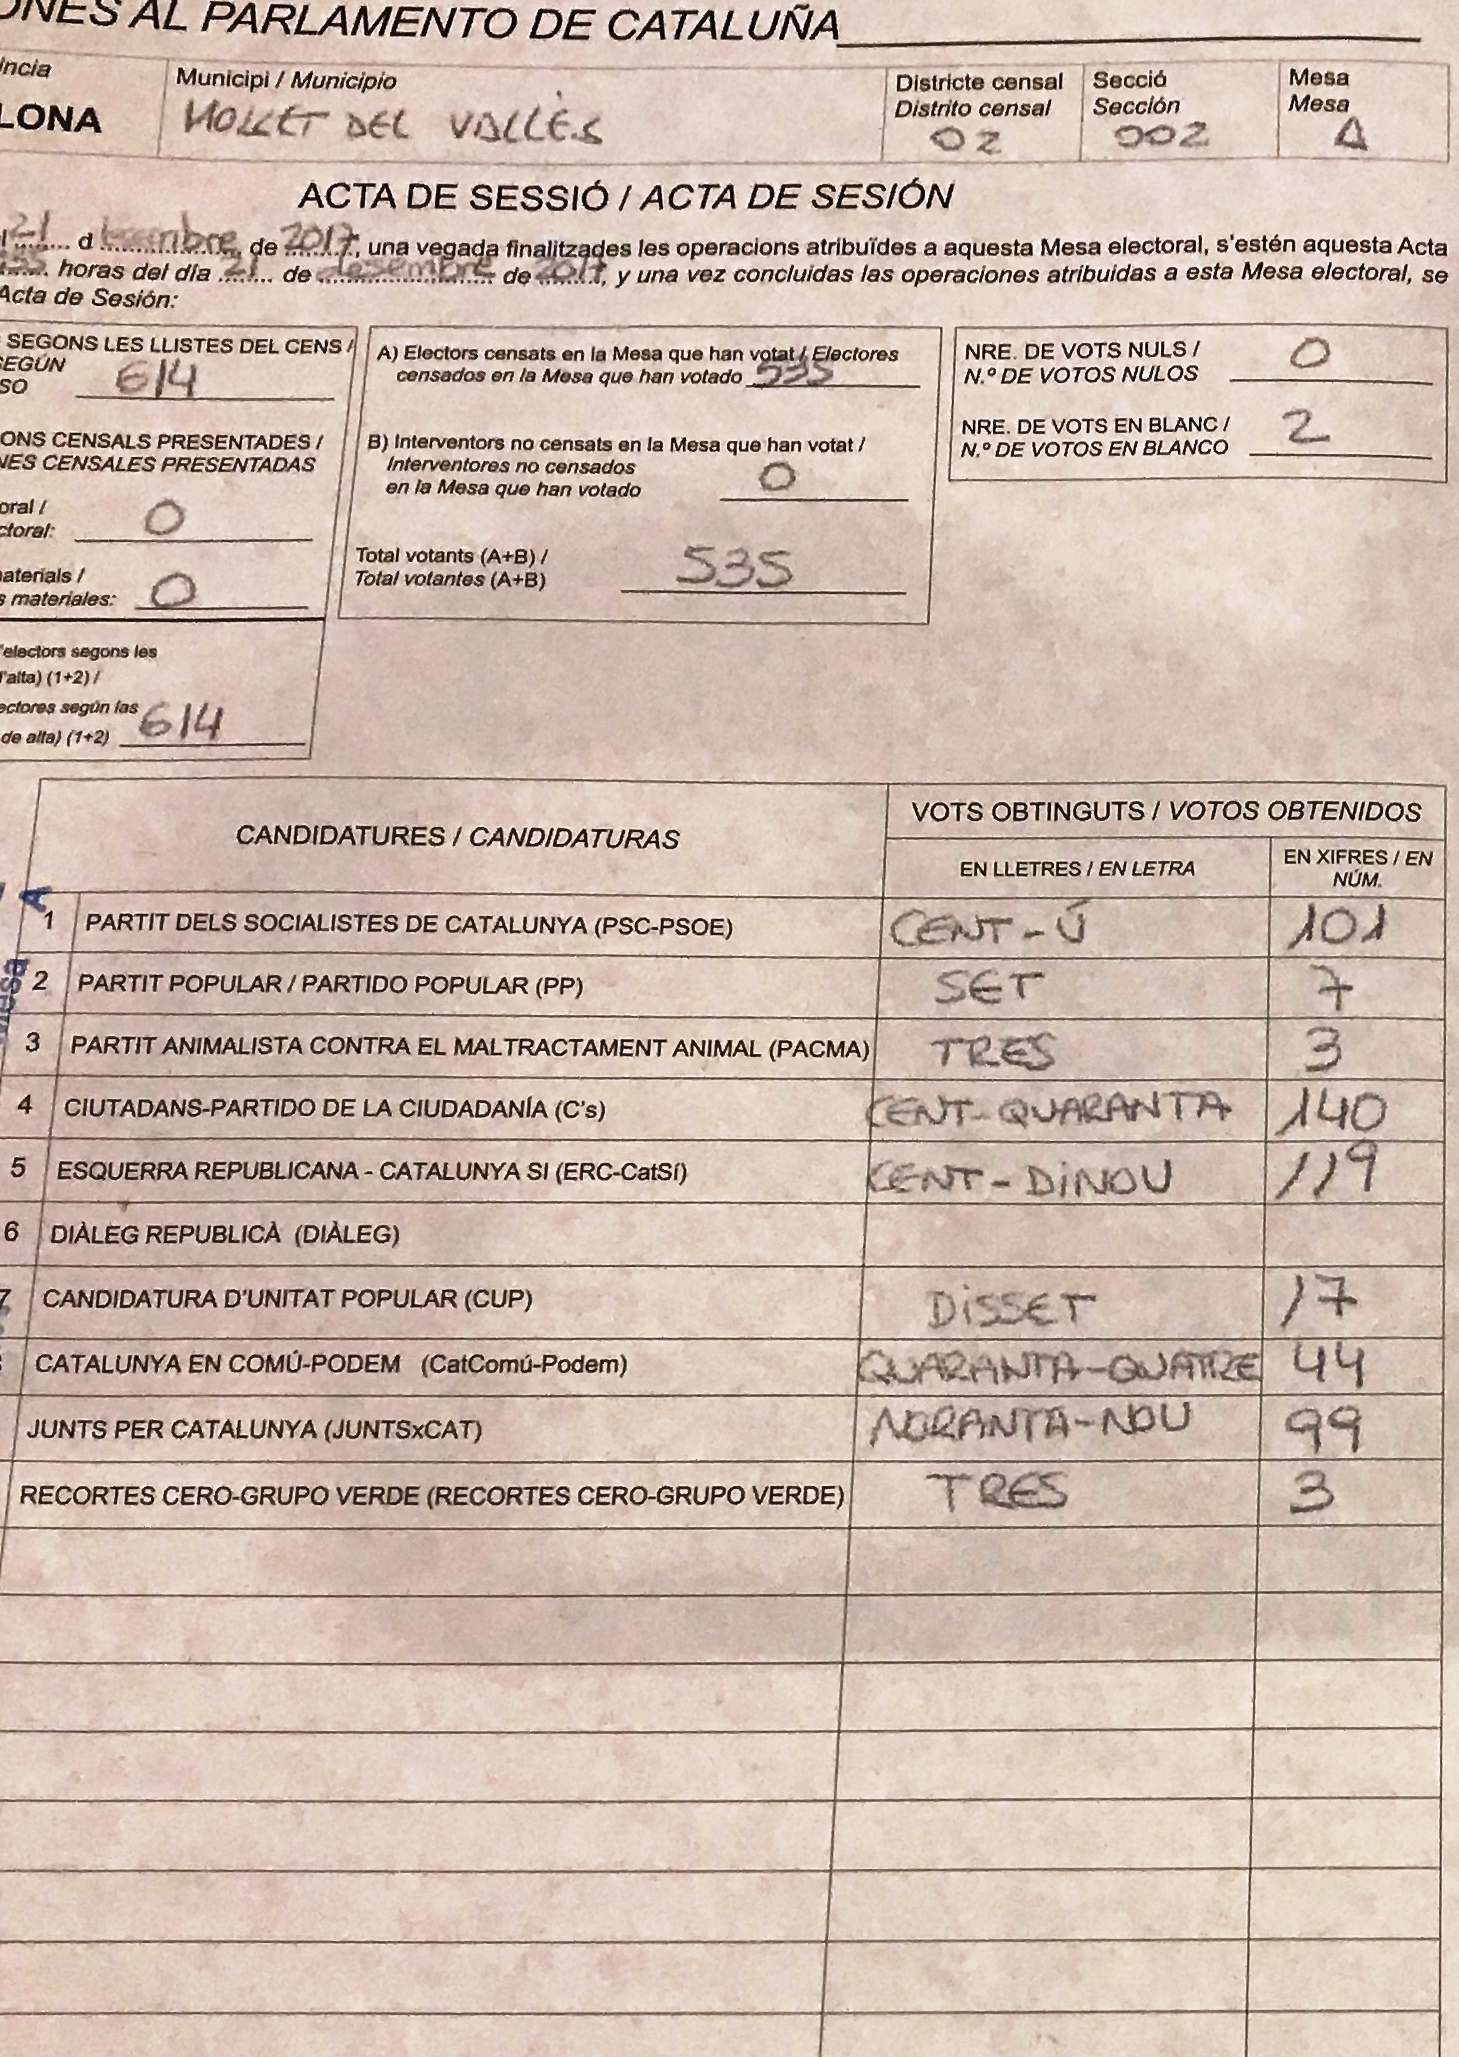 ONES AL PARLAMENTO DE CATALUÑA
íncia
LONA
Municipi / Municipio
MOLLET DEL VALLÈS
Districte censal
Distrito censal
02
Secció
Sección
002
Mesa
Mesa
A
ACTA DE SESSIÓ / ACTA DE SESIÓN
21 d desembre de 2017, una vegada finalitzades les operacions atribuïdes a aquesta Mesa electoral, s'estén aquesta Acta
horas del día 21 de desembre de 2017, y una vez concluidas las operaciones atribuidas a esta Mesa electoral, se
Acta de Sesión:
SEGONS LES LLISTES DEL CENS /
SEGÚN
SO 614
ONS CENSALS PRESENTADES /
NES CENSALES PRESENTADAS
oral /
ctoral: 0
materials /
s materiales: 0
'electors segons les
l'alta) (1+2) /
ectores según las
de alta) (1+2) 614
A) Electors censats en la Mesa que han votat / Electores
censados en la Mesa que han votado 535
B) Interventors no censats en la Mesa que han votat /
Interventores no censados
en la Mesa que han votado 0
Total votants (A+B) /
Total votantes (A+B) 535
NRE. DE VOTS NULS /
N.º DE VOTOS NULOS 0
NRE. DE VOTS EN BLANC /
N.º DE VOTOS EN BLANCO 2
CANDIDATURES / CANDIDATURAS
VOTS OBTINGUTS / VOTOS OBTENIDOS
EN LLETRES / EN LETRA
EN XIFRES / EN
NÚM.
A
Mesa
1 PARTIT DELS SOCIALISTES DE CATALUNYA (PSC-PSOE) CENT-Ú 101
2 PARTIT POPULAR / PARTIDO POPULAR (PP) SET 7
3 PARTIT ANIMALISTA CONTRA EL MALTRACTAMENT ANIMAL (PACMA) TRES 3
4 CIUTADANS-PARTIDO DE LA CIUDADANÍA (C's) CENT-QUARANTA 140
5 ESQUERRA REPUBLICANA - CATALUNYA SI (ERC-CatSí) CENT-DINOU 119
6 DIÀLEG REPUBLICÀ (DIÀLEG)
7 CANDIDATURA D'UNITAT POPULAR (CUP) DISSET 17
CATALUNYA EN COMÚ-PODEM (CatComú-Podem) QUARANTA-QUATRE 44
JUNTS PER CATALUNYA (JUNTSxCAT) NORANTA-NOU 99
RECORTES CERO-GRUPO VERDE (RECORTES CERO-GRUPO VERDE) TRES 3